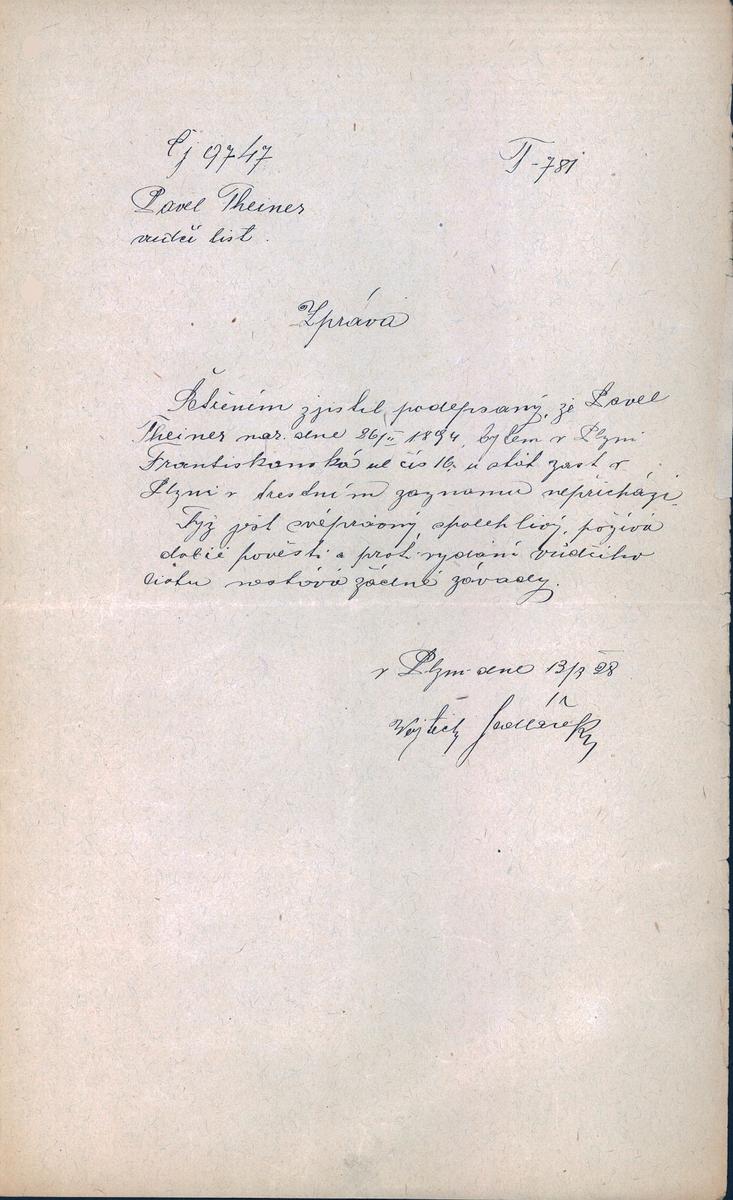 Čj 9747
T-781
Pavel Theiner
vůdčí list.
Zpráva
Šetřením zjistil podepsaný, že Pavel
Theiner nar. dne 26/II 1894, bytem v Plzni
Františkanská ul čís 16. u stát zast v
Plzni v trestním zaznamu nepřichází.
Týž jest svéprávný spolehlivý, požívá
dobré pověsti a proti vydání vůdčího
listu nestává žádné závady.
v Plzni dne 28
Vojtěch